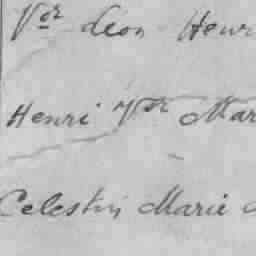 Vor Léon Henr
Henri Vor Mar
Celestin Marie